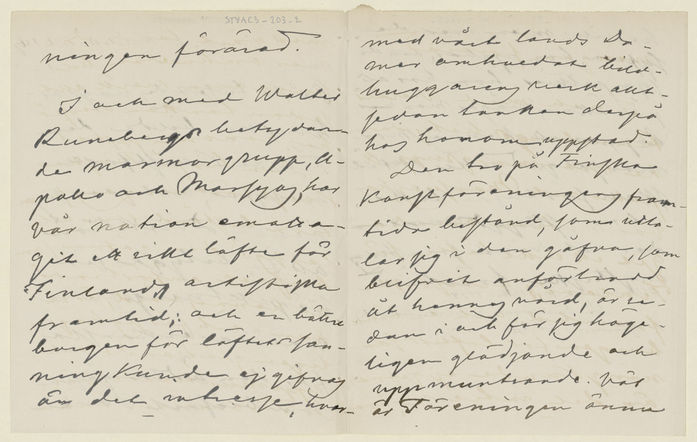 STYAC3-203-2
ningen förärad.
I och med Walter
Runebergs betydan-
de marmorgrupp, A-
pollo och Marsyas, har
vår nation emotta-
git ett rikt löfte för
Finlands artistiska
framtid; och en bättre
borgen för löftets san-
ning kunde ej gifvas
än det intresse, hvar-
med vårt lands Da-
mer omhuldat bild-
huggarens verk allt-
sedan tanken derpå
hos honom uppstod.
Den tro på Finska
Konstföreningens fram-
tida bestånd, som utta-
lar sig i den gåfva, som
blifvit anförtrodd
åt hennes vård, är re-
dan i och för sig höge-
ligen glädjande och
uppmuntrande. Väl
är Föreningen ännu